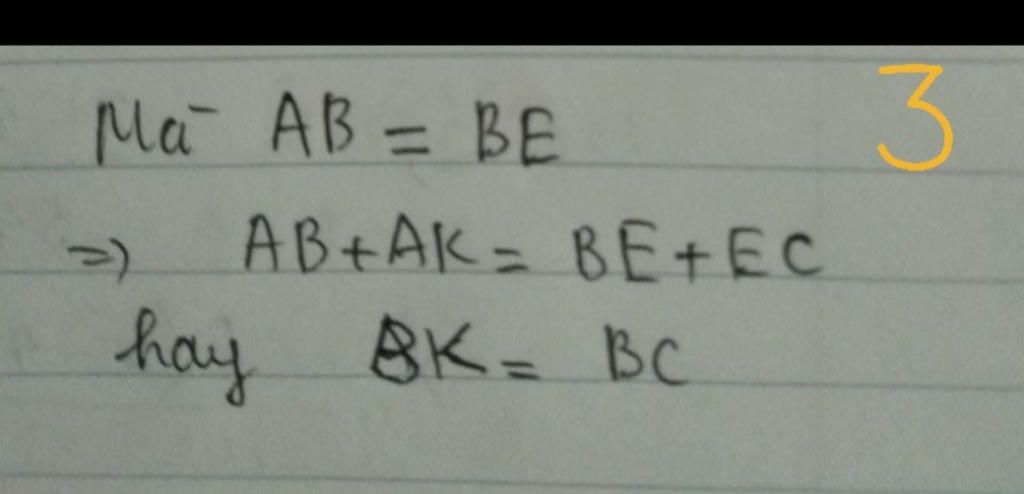 Mà AB = BE
3
=> AB + AK = BE + EC
hay BK = BC